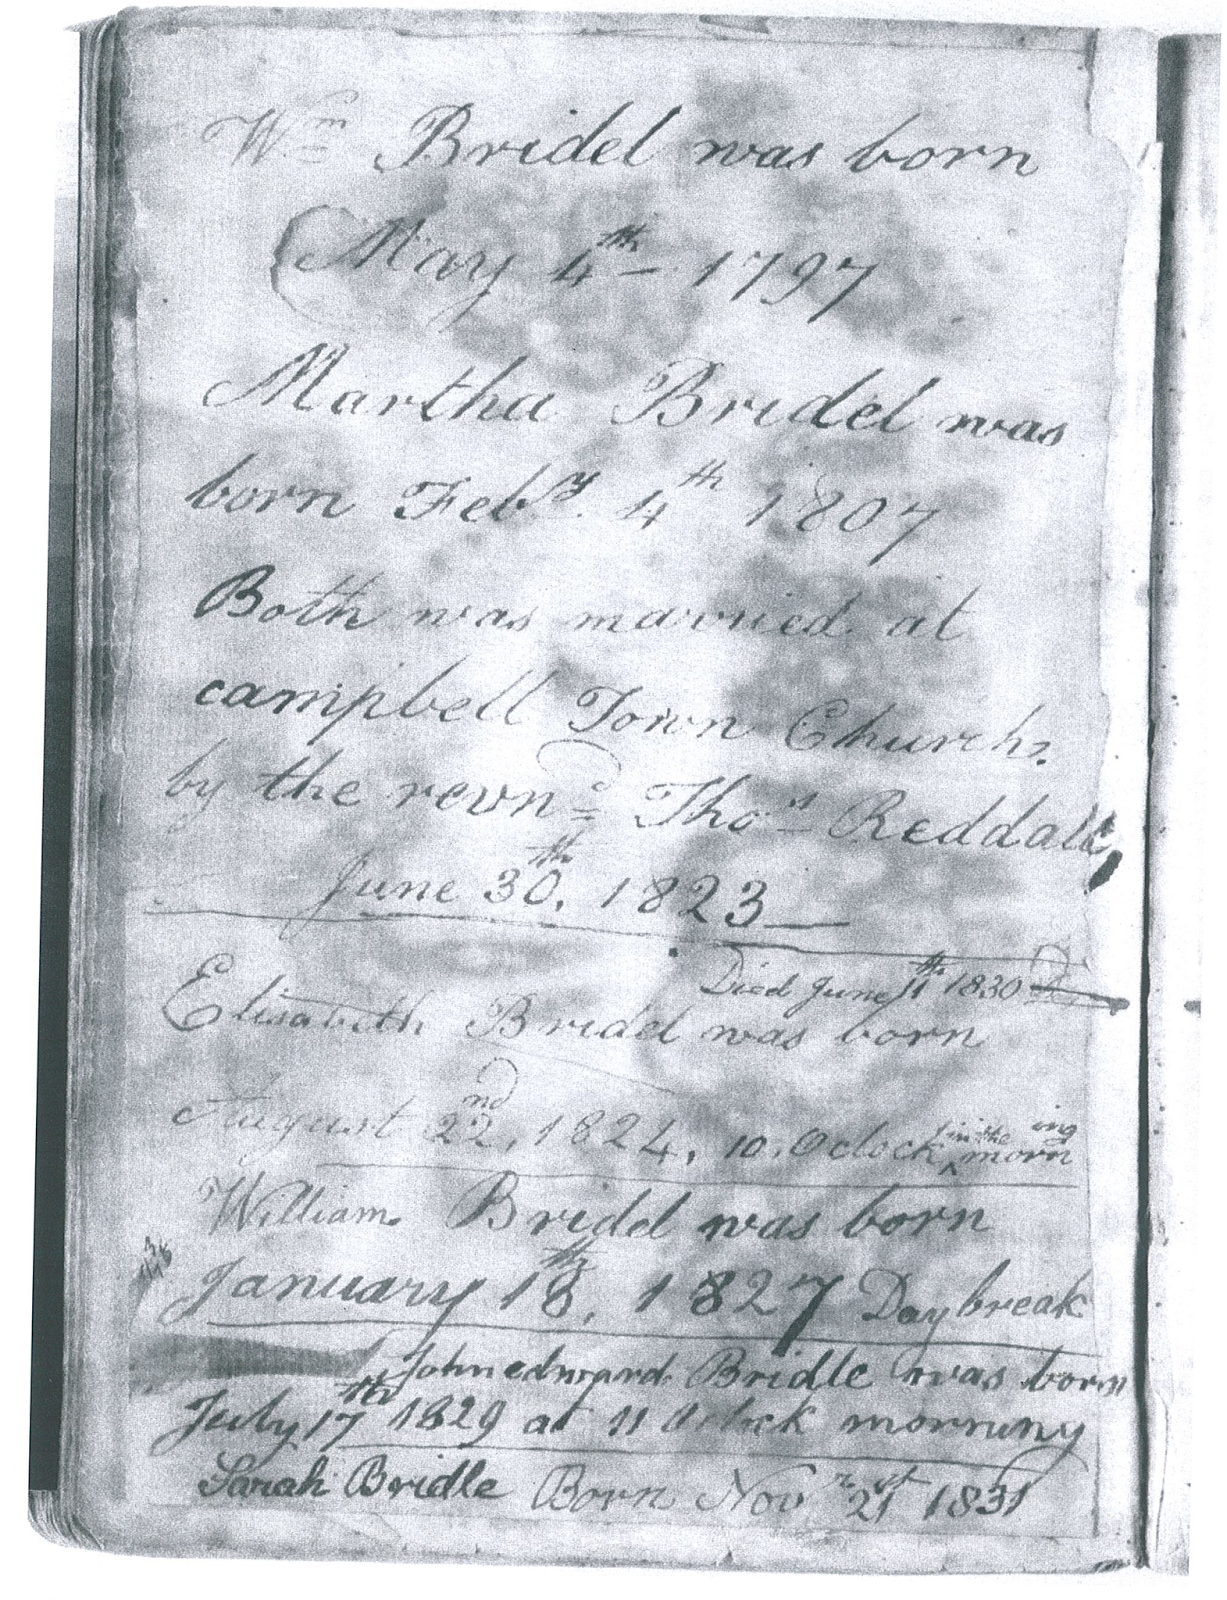 Wm Bridel was born
May 4th - 1797
Martha Bridel was
born Feby. 4th 1807
Both was married at
campbell Town Church.
by the revnd Thos Reddall,
June 30th, 1823
Died June 11th 1830
Elisabeth Bridel was born
August 22nd, 1824, 10, Oclock in the morning
William Bridel was born
January 18th, 1827 Day break
John edward Bridle was born
July 17th 1829 at 11 Oclock morning
Sarah Bridle Born Novr 21st 1831